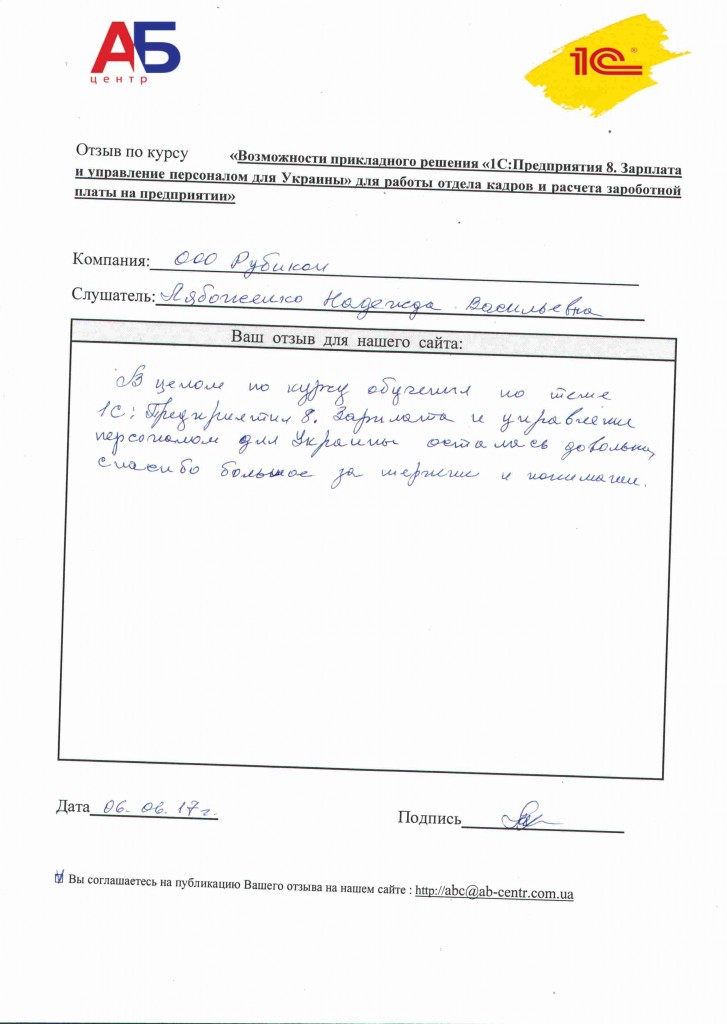 АБ
центр
1С®
Отзыв по курсу «Возможности прикладного решения «1С:Предприятия 8. Зарплата
и управление персоналом для Украины» для работы отдела кадров и расчета зароботной
платы на предприятии»
Компания: ООО Рубикон
Слушатель: Лябоженко Надежда Васильевна
Ваш отзыв для нашего сайта:
В целом по курсу обучения по теме
1С: Предприятия 8. Зарплата и управление
персоналом для Украины осталась довольна,
спасибо большое за терпение и понимание.
Дата 06.06.17г.
Подпись
Вы соглашаетесь на публикацию Вашего отзыва на нашем сайте : http://abc@ab-centr.com.ua